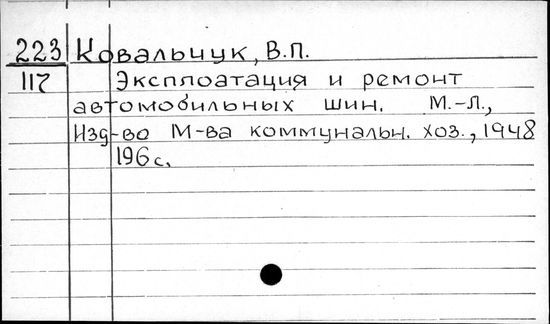 223 Ковальчук, В.П.
117 Эксплоатация и ремонт
автомобильных шин. М.-Л.,
Изд-во М-ва коммунальн. хоз., 1948
196 с.